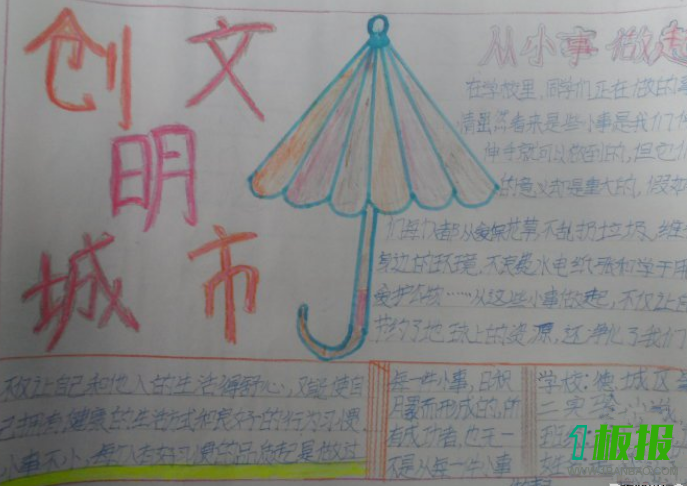 创 文
明
城 市
从小事 做起
在学校里,同学们正在做的事
清虽然看来是些小事是我们
伸手就可以做到的,但它
的意义却是重大的,假如
们每人都从爱集花草,不乱扔垃圾、维
身边的环境,不浪费水电纸张和学于用
爱护公物……从这些小事做起,不仅让
节约了地球上的资源,还净化了我们
不仅让自己和他人的生活得舒心,又能使自
己拥有健康的生活方式和良好的行为习惯,
小事不小,每个人
每一件小事,日积
月累而形成的,所
有成功者,也无一
不是从每一件小事
学校:德城区
二实验小学
板报